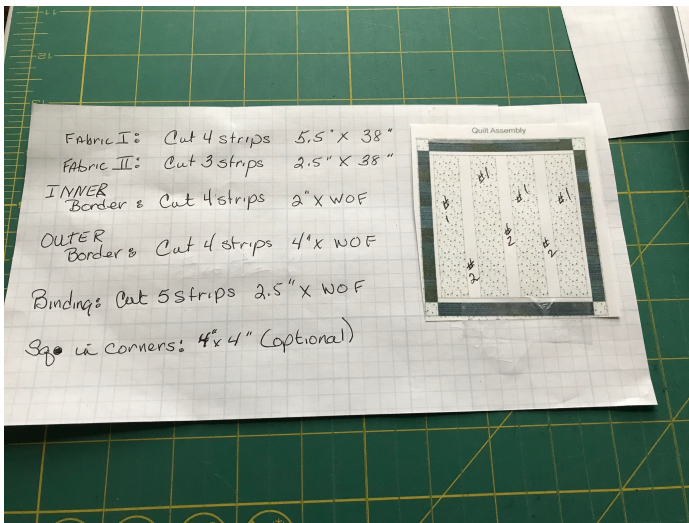 FAbric I: Cut 4 strips 5.5" X 38"
FAbric II: Cut 3 strips 2.5" X 38"
INNER
Border: Cut 4 strips 2" X WOF
OUTER
Border: Cut 4 strips 4" X WOF
Binding: Cut 5 strips 2.5" X WOF
Sq. in corners: 4" x 4" (optional)
Quilt Assembly
#1
#1
#1
#1
#2
#2
#2